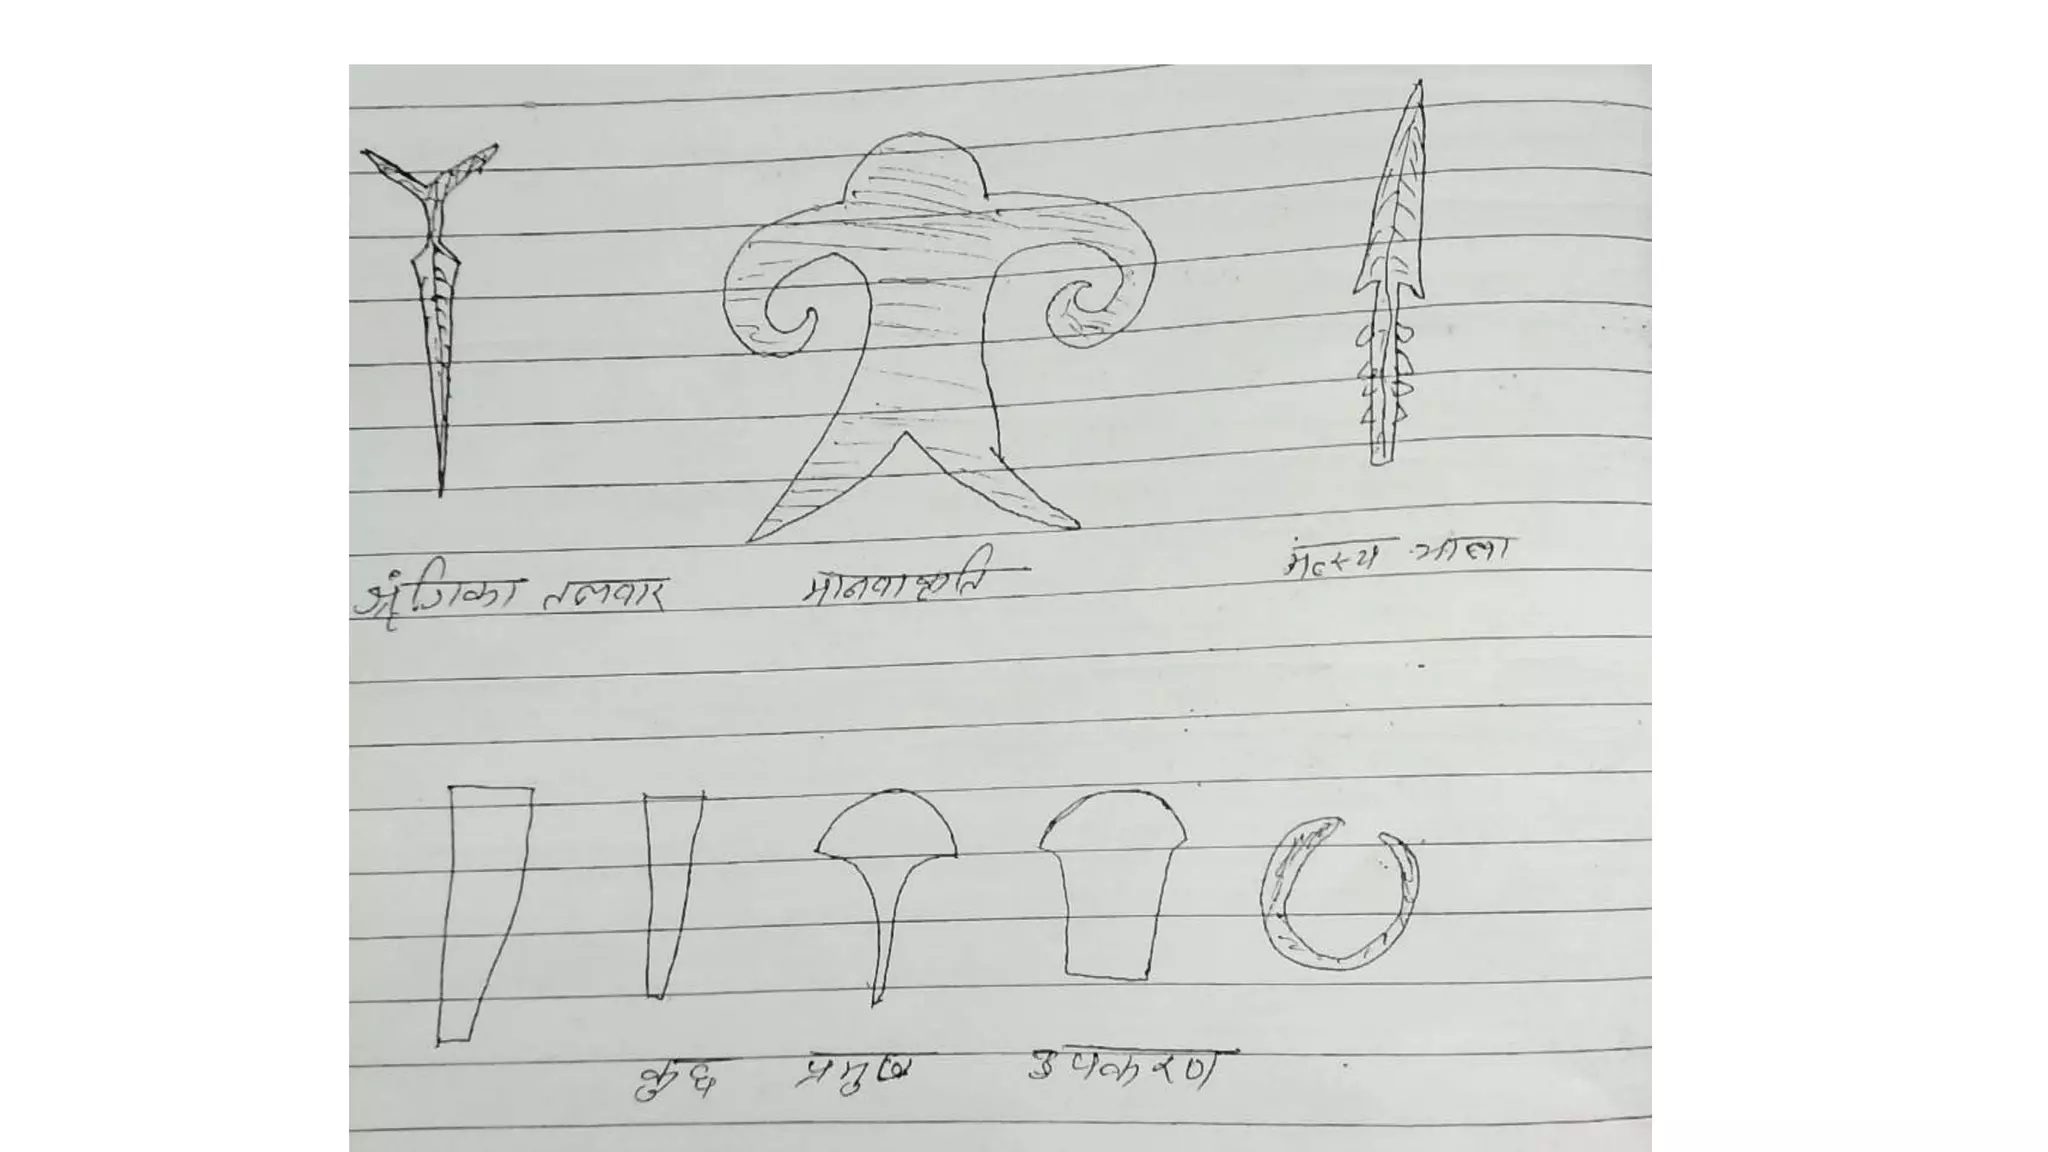 श्रृंगिका तलवार
मानवाकृति
मत्स्य भाला
कुछ प्रमुख उपकरण